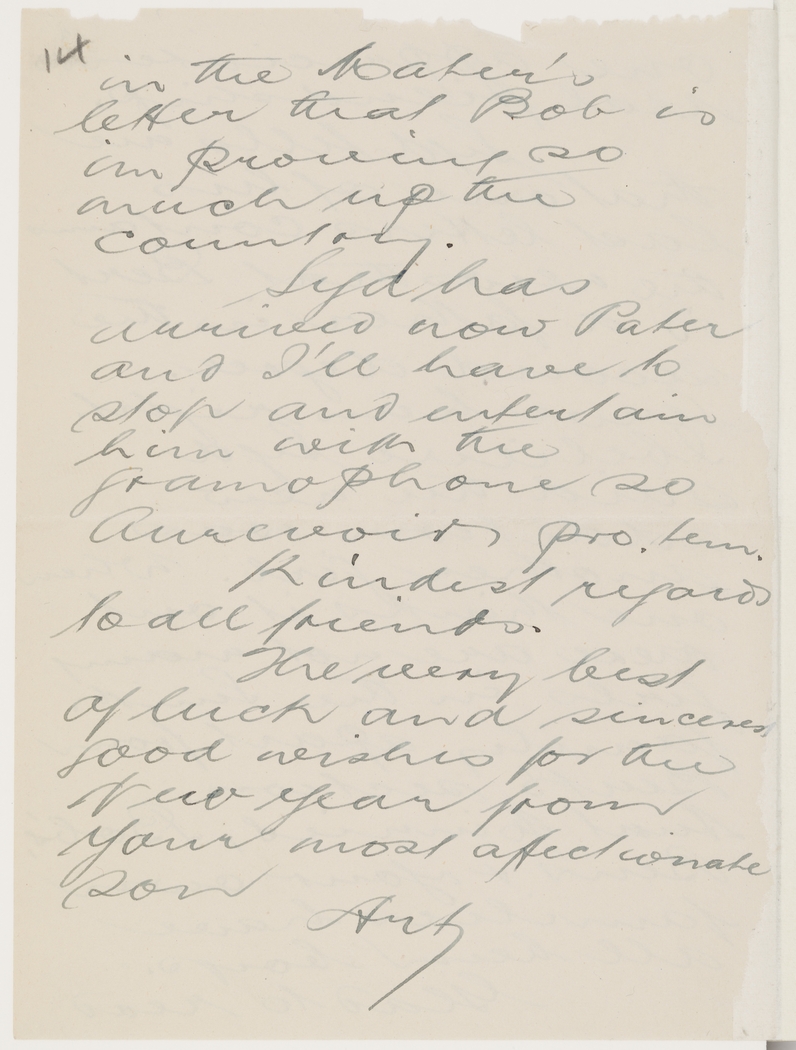 14
in the Mater's
letter that Bob is
improving so
much up the
country.
Syd has
arrived now Pater
and I'll have to
stop and entertain
him with the
gramophone so
Aurevoir pro. tem.
Kindest regards
to all friends.
The very best
of luck and sincerest
good wishes for the
New Year from
Your most affectionate
son
Art